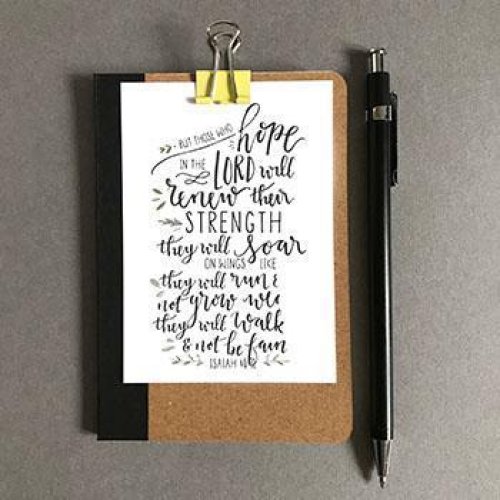 - BUT THOSE WHO hope
IN THE LORD will
renew their
STRENGTH
they will soar
ON WINGS LIKE
they will run &
not grow we
they will walk
& not be fain
ISAIAH